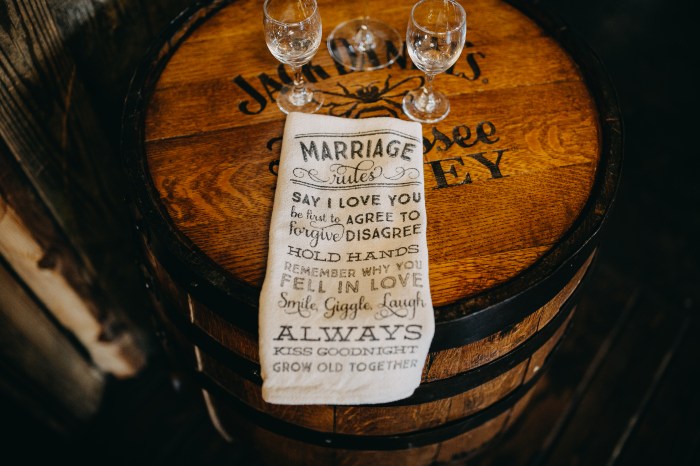 JACK DANIEL'S
Tennessee
WHISKEY
MARRIAGE
rules
SAY I LOVE YOU
be first to AGREE TO
forgive DISAGREE
HOLD HANDS
REMEMBER WHY YOU
FELL IN LOVE
Smile, Giggle, Laugh
ALWAYS
KISS GOODNIGHT
GROW OLD TOGETHER